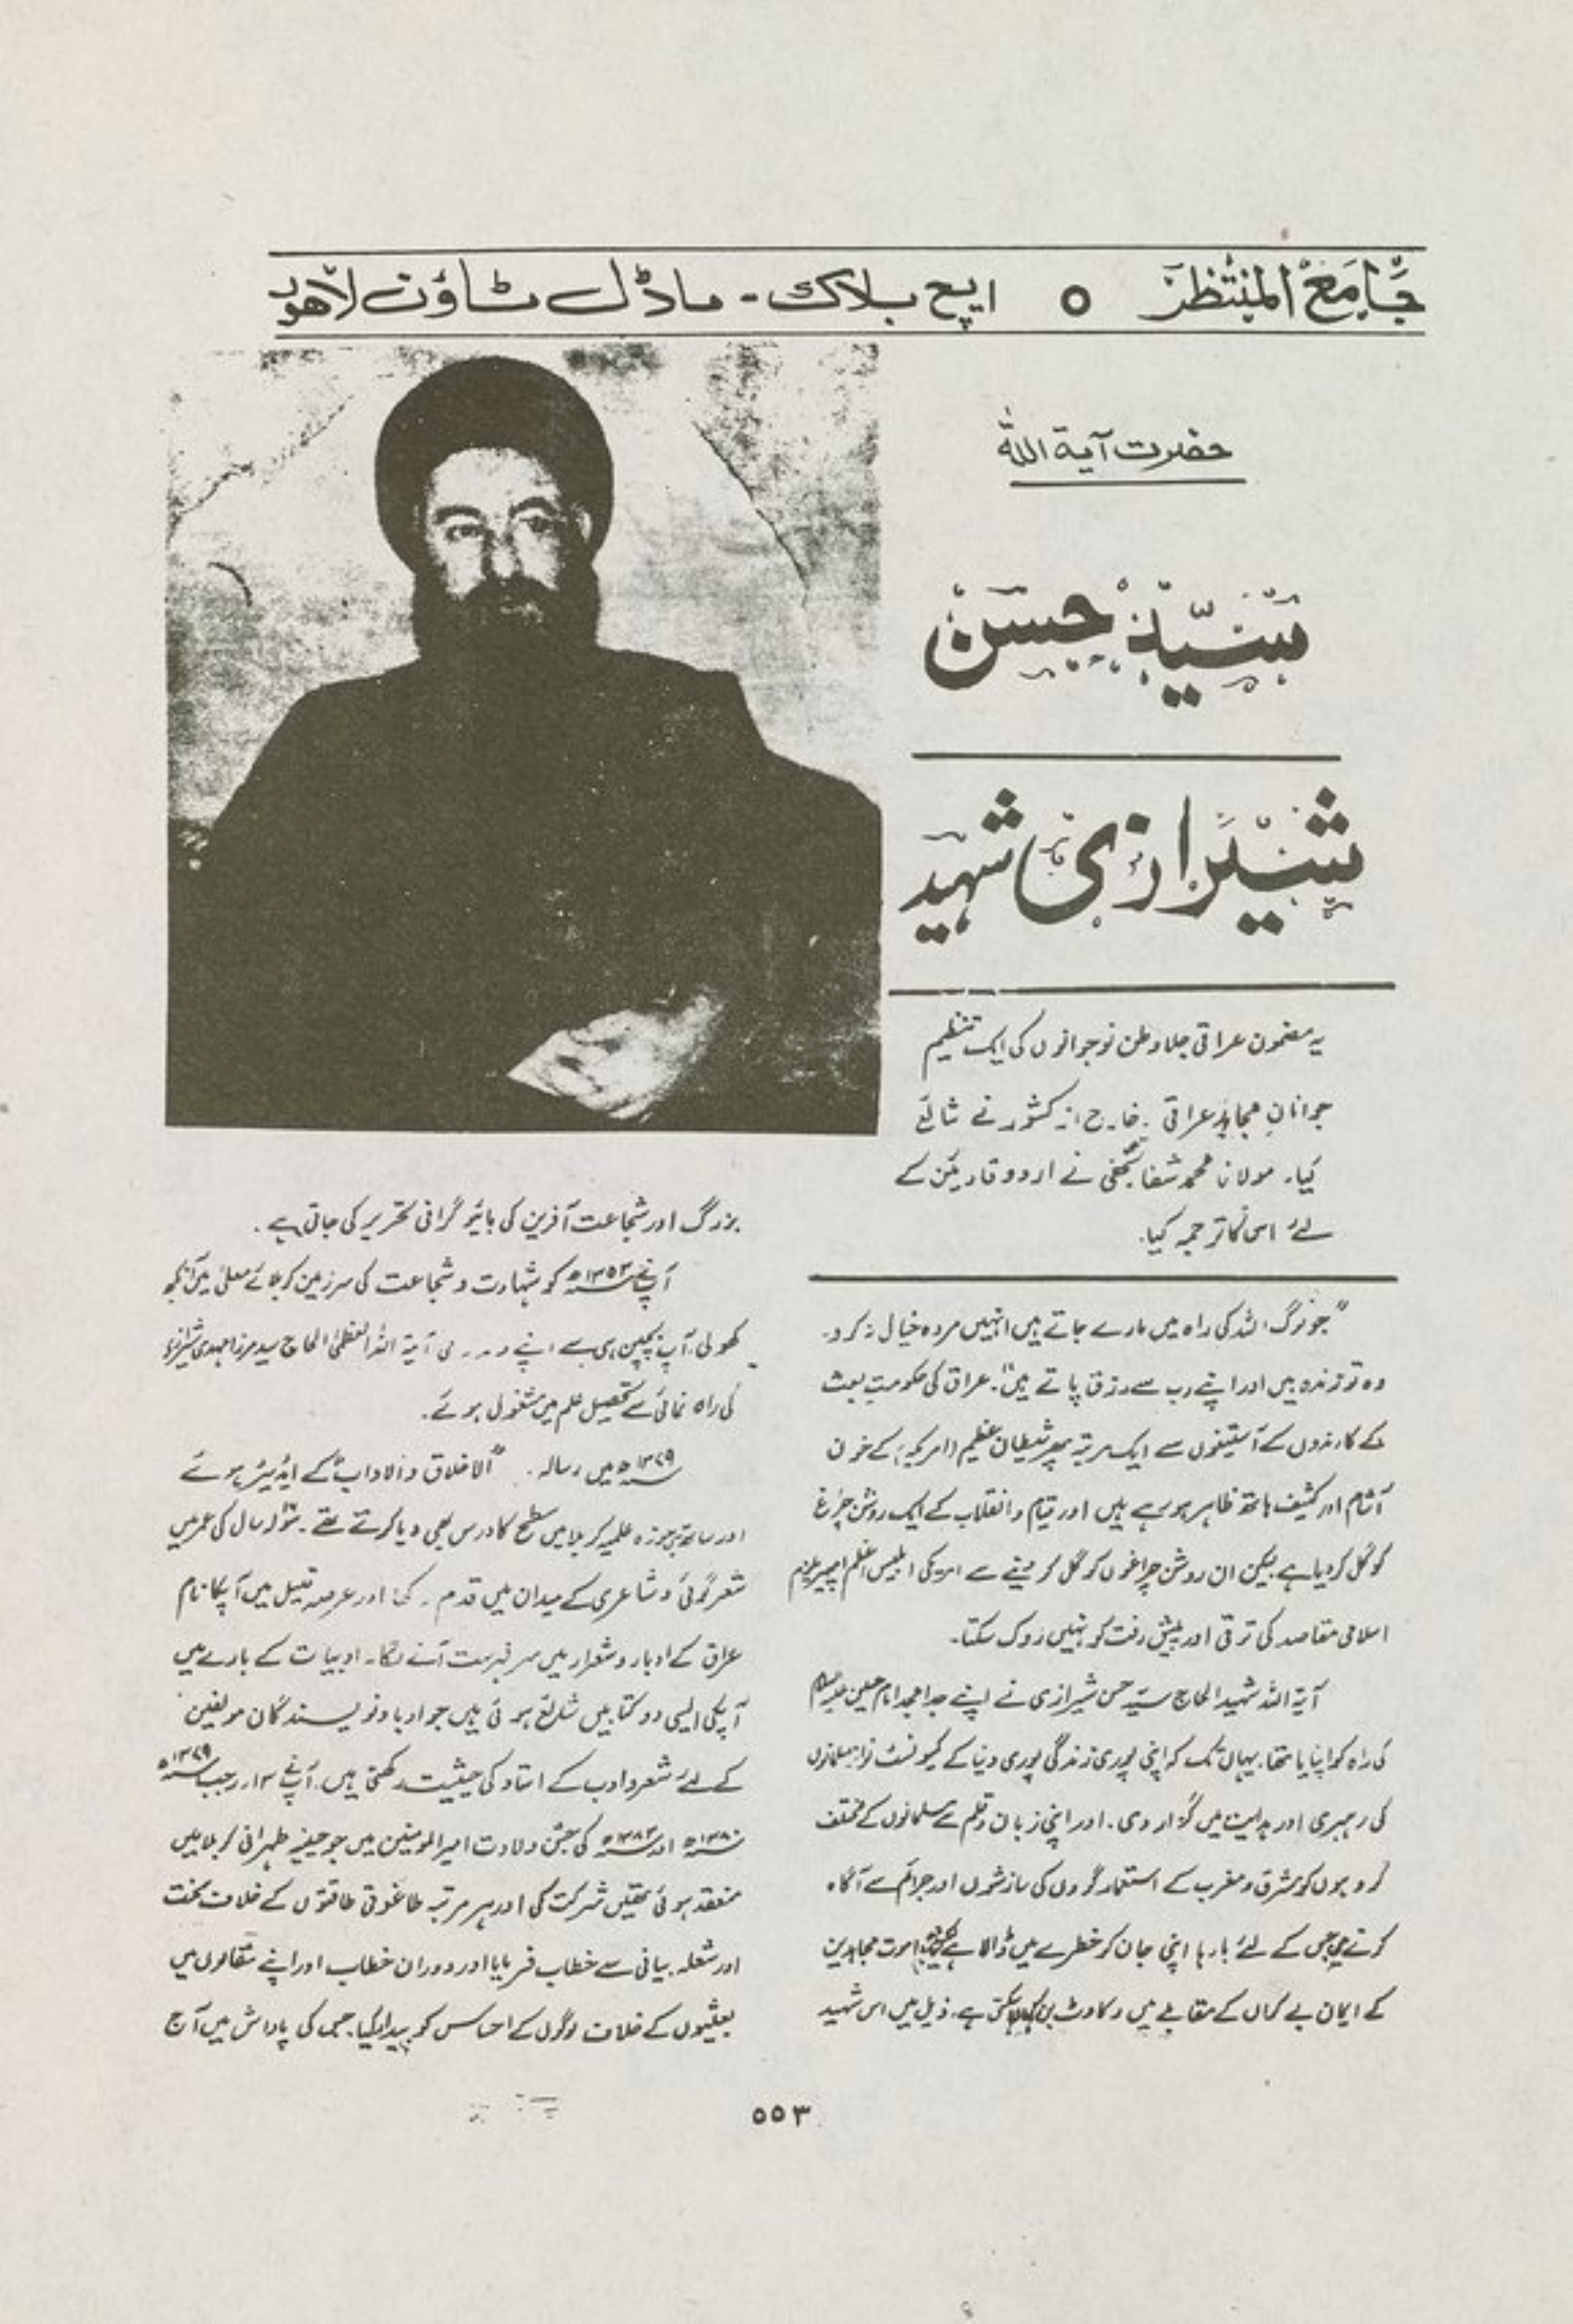 جامع المنتظر ○ ایچ بلاک - ماڈل ٹاؤن لاہور
حضرت آیة اللہ
سیّد حسن
شیرازی شہید
یہ مضمون عراقی جلاوطن نوجوانوں کی ایک تنظیم
جوانانِ مجاہد عراقی خارج از کشور نے شائع
کیا۔ مولانا محمد شفا نجفی نے اردو قارئین کے
لئے اس کا ترجمہ کیا۔
"جو لوگ اللہ کی راہ میں مارے جاتے ہیں انہیں مردہ خیال نہ کرو۔
وہ تو زندہ ہیں اور اپنے رب سے رزق پاتے ہیں"۔ عراق کی حکومتِ بعث
کے کارندوں کے آستینوں سے ایک مرتبہ پھر شیطان عظیم (امریکہ) کے خون
آشام اور کثیف ہاتھ ظاہر ہو رہے ہیں اور قیام و انقلاب کے ایک روشن چراغ
کو گل کر دیا ہے لیکن ان روشن چراغوں کو گل کر دینے سے امریکی ابلیس اعظم امپیریلزم
اسلامی مقاصد کی ترقی اور پیش رفت کو نہیں روک سکتا۔
آیة اللہ شہید الحاج سیّد حسن شیرازی نے اپنے جد امجد امام حسین علیہ السلام
کی راہ کو اپنایا تھا۔ یہاں تک کہ اپنی پوری زندگی پوری دنیا کے کمیونسٹ نزاد مسلمانوں
کی رہبری اور ہدایت میں گزار دی۔ اور اپنی زبان و قلم سے مسلمانوں کے مختلف
گروہوں کو مشرق و مغرب کے استعمار گروں کی سازشوں اور جرائم سے آگاہ
کرتے رہے جس کے لئے بارہا اپنی جان کو خطرے میں ڈالا ہے موت مجاہدین
کے ایمان بے گماں کے مقابلے میں رکاوٹ بن سکتی ہے۔ ذیل میں اس شہید
بزرگ اور شجاعت آفرین کی بائیو گرافی تحریر کی جاتی ہے۔
آپ نے ۱۳۵۳ھ کو شہادت و شجاعت کی سرزمین کربلائے معلیٰ میں آنکھ
کھولی۔ آپ بچپن ہی سے اپنے آیة اللہ العظمیٰ الحاج سید مرزا مہدی شیرازی
کی راہ نمائی سے تحصیل علم میں مشغول ہوئے۔
۱۳۷۹ھ میں رسالہ "الاخلاق والاداب" کے ایڈیٹر ہوئے
اور ساتھ ہی حوزہ علمیہ کربلا میں سطح کا درس بھی دیا کرتے تھے۔ سولہ سال کی عمر میں
شعر گوئی و شاعری کے میدان میں قدم رکھا اور عرصہ قلیل میں آپکا نام
عراق کے ادباء و شعراء میں سر فہرست آنے لگا۔ ادبیات کے بارے میں
آپکی ایسی دو کتابیں شائع ہوئی ہیں جو ادبا و نویسندگان مولفین
کے لئے شعر و ادب کے استاد کی حیثیت رکھتی ہیں۔ آپ نے ۱۳ رجب ۱۳۷۹ھ
۱۳۸۰ھ اور ۱۳۸۳ھ کی جشن ولادت امیر المومنین میں جو حلیفہ طہرانی کربلا میں
منعقد ہوئی تھیں شرکت کی اور ہر مرتبہ طاغوتی طاقتوں کے خلاف سخت
اور شعلہ بیانی سے خطاب فرمایا اور دوران خطاب اور اپنے مقالوں میں
بعثیوں کے خلاف لوگوں کے احساس کو بیدار کیا۔ جس کی پاداش میں آج
۵۵۳